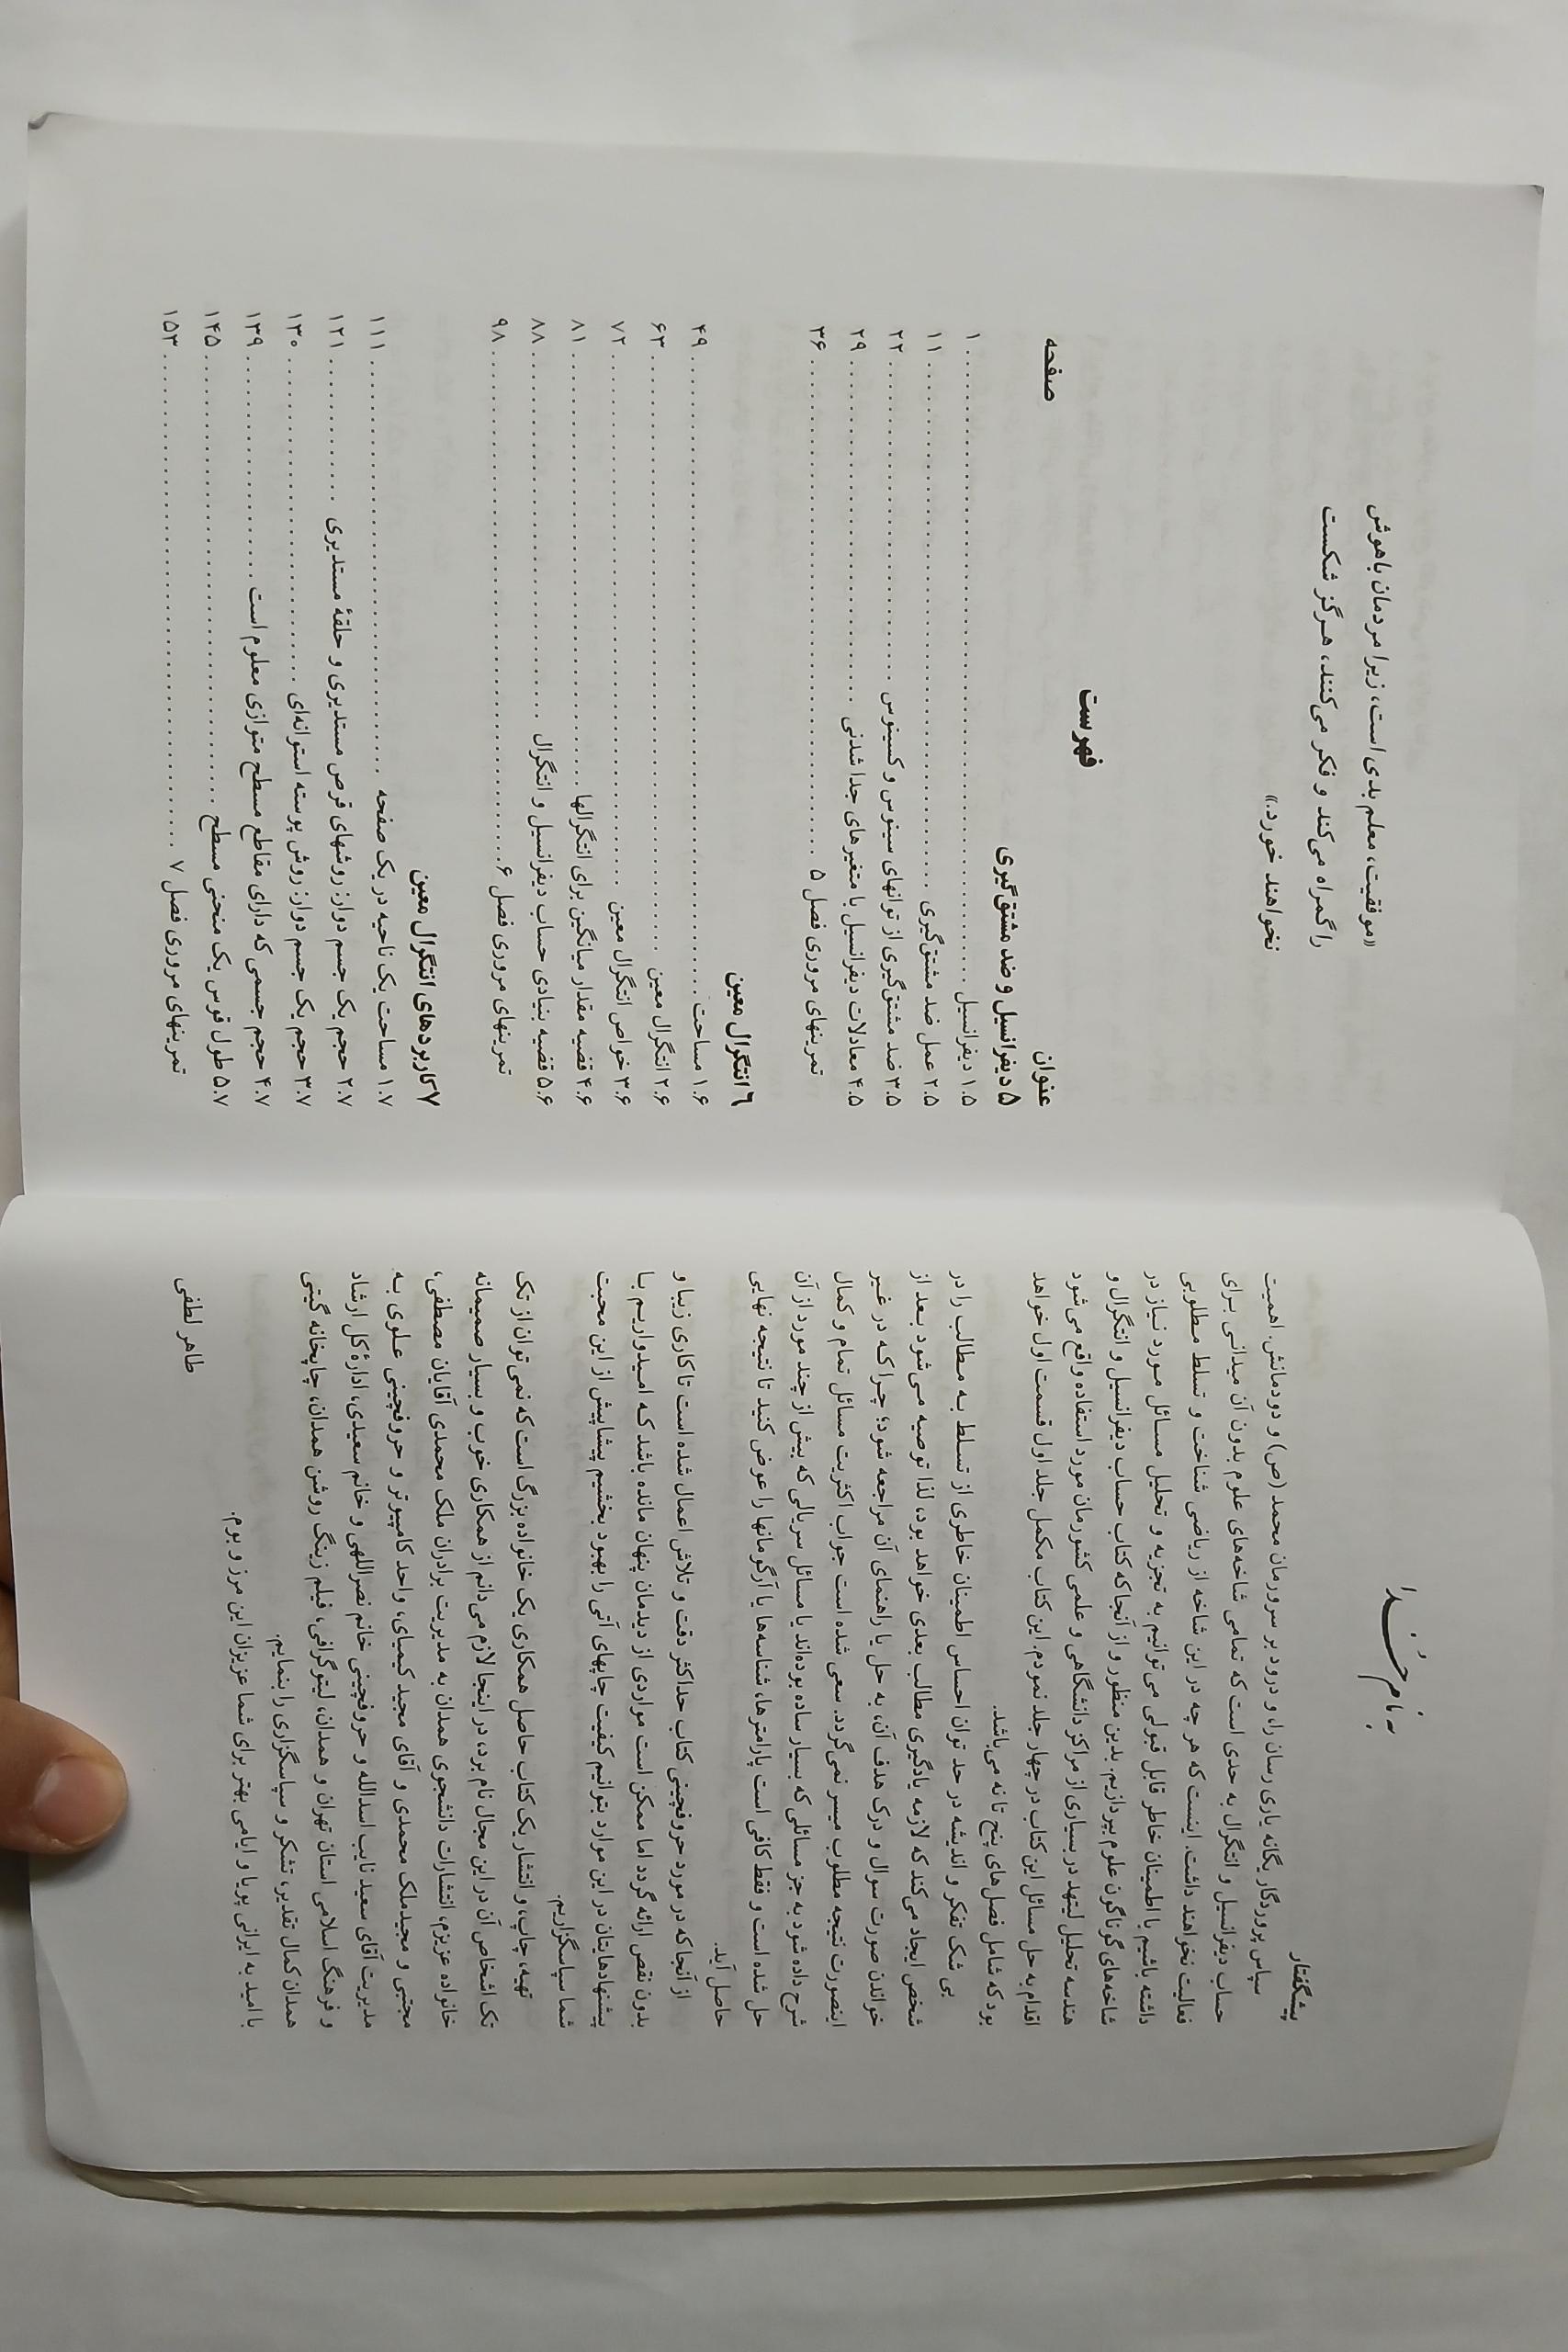 به نام خدا
پیشگفتار
سپاس پروردگار یگانه یاری رسان را، و درود بر سرورمان محمد (ص) و دودمانش. اهمیت
حساب دیفرانسیل و انتگرال به حدی است که تمامی شاخه‌های علوم بدون آن میدانی برای
فعالیت نخواهند داشت. اینست که هر چه در این شاخه از ریاضی شناخت و تسلط مطلوبی
داشته باشیم با اطمینان خاطر قابل قبولی می‌توانیم به تجزیه و تحلیل مسائل مورد نیاز در
شاخه‌های گوناگون علوم بپردازیم. بدین منظور و از آنجا که کتاب حساب دیفرانسیل و انتگرال و
هندسه تحلیل لیتهد در بسیاری از مراکز دانشگاهی و علمی کشورمان مورد استفاده واقع می‌شود
اقدام به حل مسائل این کتاب در چهار جلد نمودم. این کتاب مکمل جلد اول قسمت اول خواهد
بود که شامل فصل‌های پنج تا نه می‌باشد.
بی شک تفکر و اندیشه در حد توان احساس اطمینان خاطری از تسلط به مطالب را در
شخص ایجاد می‌کند که لازمه یادگیری مطالب بعدی خواهد بود، لذا توصیه می‌شود بعد از
خواندن صورت سوال و درک هدف آن، به حل یا راهنمای آن مراجعه شود؛ چرا که در غیر
اینصورت نتیجه مطلوب میسر نمی‌گردد. سعی شده است جواب اکثریت مسائل تمام و کمال
شرح داده شود به جز مسائلی که بسیار ساده بوده‌اند یا مسائل سریالی که بیش از چند مورد از آن
حل شده است و فقط کافی است پارامترها، شناسه‌ها یا آرگومانها را عوض کنید تا نتیجه نهایی
حاصل آید.
از آنجا که در مورد حروفچینی کتاب حداکثر دقت و تلاش اعمال شده است تا کاری زیبا و
بدون نقص ارائه گردد اما ممکن است مواردی از دیدمان پنهان مانده باشد که امیدواریم با
پیشنهادهایتان در این موارد بتوانیم کیفیت چاپهای آتی را بهبود بخشیم پیشاپیش از این محبت
شما سپاسگزاریم.
تهیه، چاپ، و انتشار یک کتاب حاصل همکاری یک خانواده بزرگ است که نمی‌توان از تک
تک اشخاص آن در این مجال نام برد، در اینجا لازم می‌دانم از همکاری خوب و بسیار صمیمانه
خانواده عزیزم، انتشارات دانشجوی همدان به مدیریت برادران ملک محمدی آقایان مصطفی،
مجتبی و مجید ملک محمدی و آقای مجید کیمیای، واحد کامپیوتر و حروفچینی علوی به
مدیریت آقای سعید نایب اسدالله و حروفچینی خانم نصراللهی و خانم سعیدی، ادارهٔ کل ارشاد
و فرهنگ اسلامی استان تهران و همدان، لیتوگرافی، فیلم زینگ روشن همدان، چاپخانه گیتی
همدان کمال تقدیر، تشکر و سپاسگزاری را بنمایم.
با امید به ایرانی پویا و ایامی بهتر برای شما عزیزان این مرز و بوم.
طاهر لطفی
«موفقیت، معلم بدی است، زیرا مردمان باهوش
را گمراه می‌کند و فکر می‌کنند، هرگز شکست
نخواهند خورد.»
فهرست
عنوان صفحه
۵ دیفرانسیل و ضد مشتق‌گیری
۱.۵ دیفرانسیل ........ ۱
۲.۵ عمل ضد مشتق‌گیری ........ ۱۱
۳.۵ ضد مشتق‌گیری از توانهای سینوس و کسینوس ........ ۲۲
۴.۵ معادلات دیفرانسیل با متغیرهای جدا شدنی ........ ۲۹
تمرینهای مروری فصل ۵ ........ ۳۶
۶ انتگرال معین
۱.۶ مساحت ........ ۴۹
۲.۶ انتگرال معین ........ ۶۳
۳.۶ خواص انتگرال معین ........ ۷۲
۴.۶ قضیه مقدار میانگین برای انتگرالها ........ ۸۱
۵.۶ قضیه بنیادی حساب دیفرانسیل و انتگرال ........ ۸۸
تمرینهای مروری فصل ۶ ........ ۹۸
۷ کاربردهای انتگرال معین
۱.۷ مساحت یک ناحیه در یک صفحه ........ ۱۱۱
۲.۷ حجم یک جسم دوار: روشهای قرص مستدیری و حلقهٔ مستدیری ........ ۱۲۱
۳.۷ حجم یک جسم دوار: روش پوسته استوانه‌ای ........ ۱۳۰
۴.۷ حجم جسمی که دارای مقاطع مسطح متوازی معلوم است ........ ۱۳۹
۵.۷ طول قوس یک منحنی مسطح ........ ۱۴۵
تمرینهای مروری فصل ۷ ........ ۱۵۳